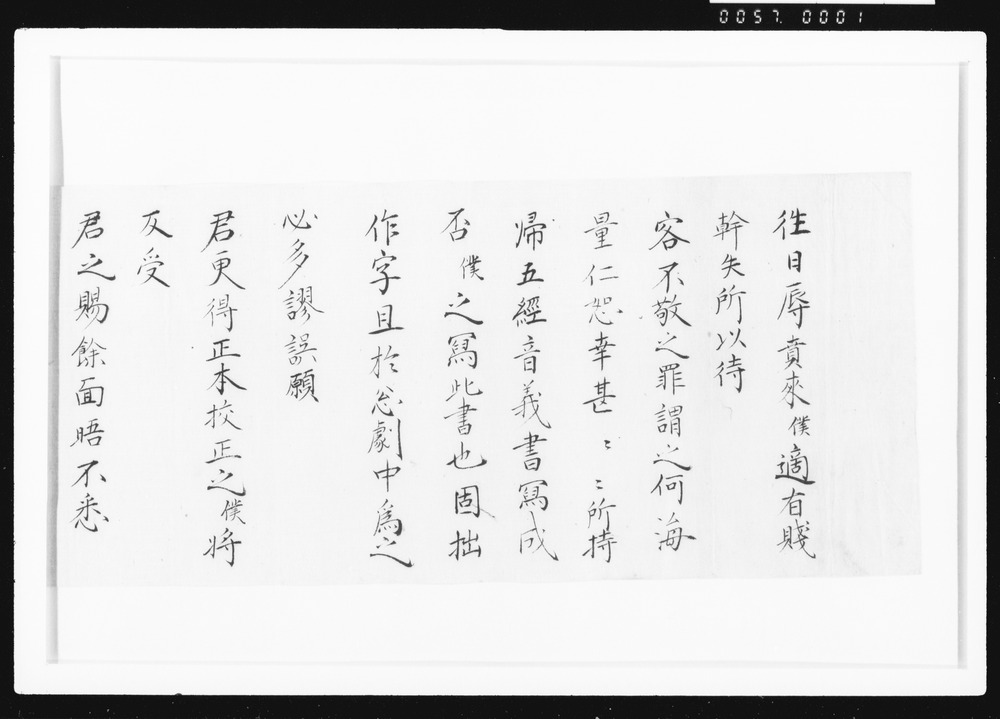 0057.0001
徃日辱賁來僕適有賤
幹失所以待
客不敬之罪謂之何海
量仁恕幸甚〻〻所持
帰五經音義書寫成
否僕之寫此書也固拙
作字且於忩劇中爲之
必多謬誤願
君更得正本挍正之僕将
反受
君之賜餘面晤不悉